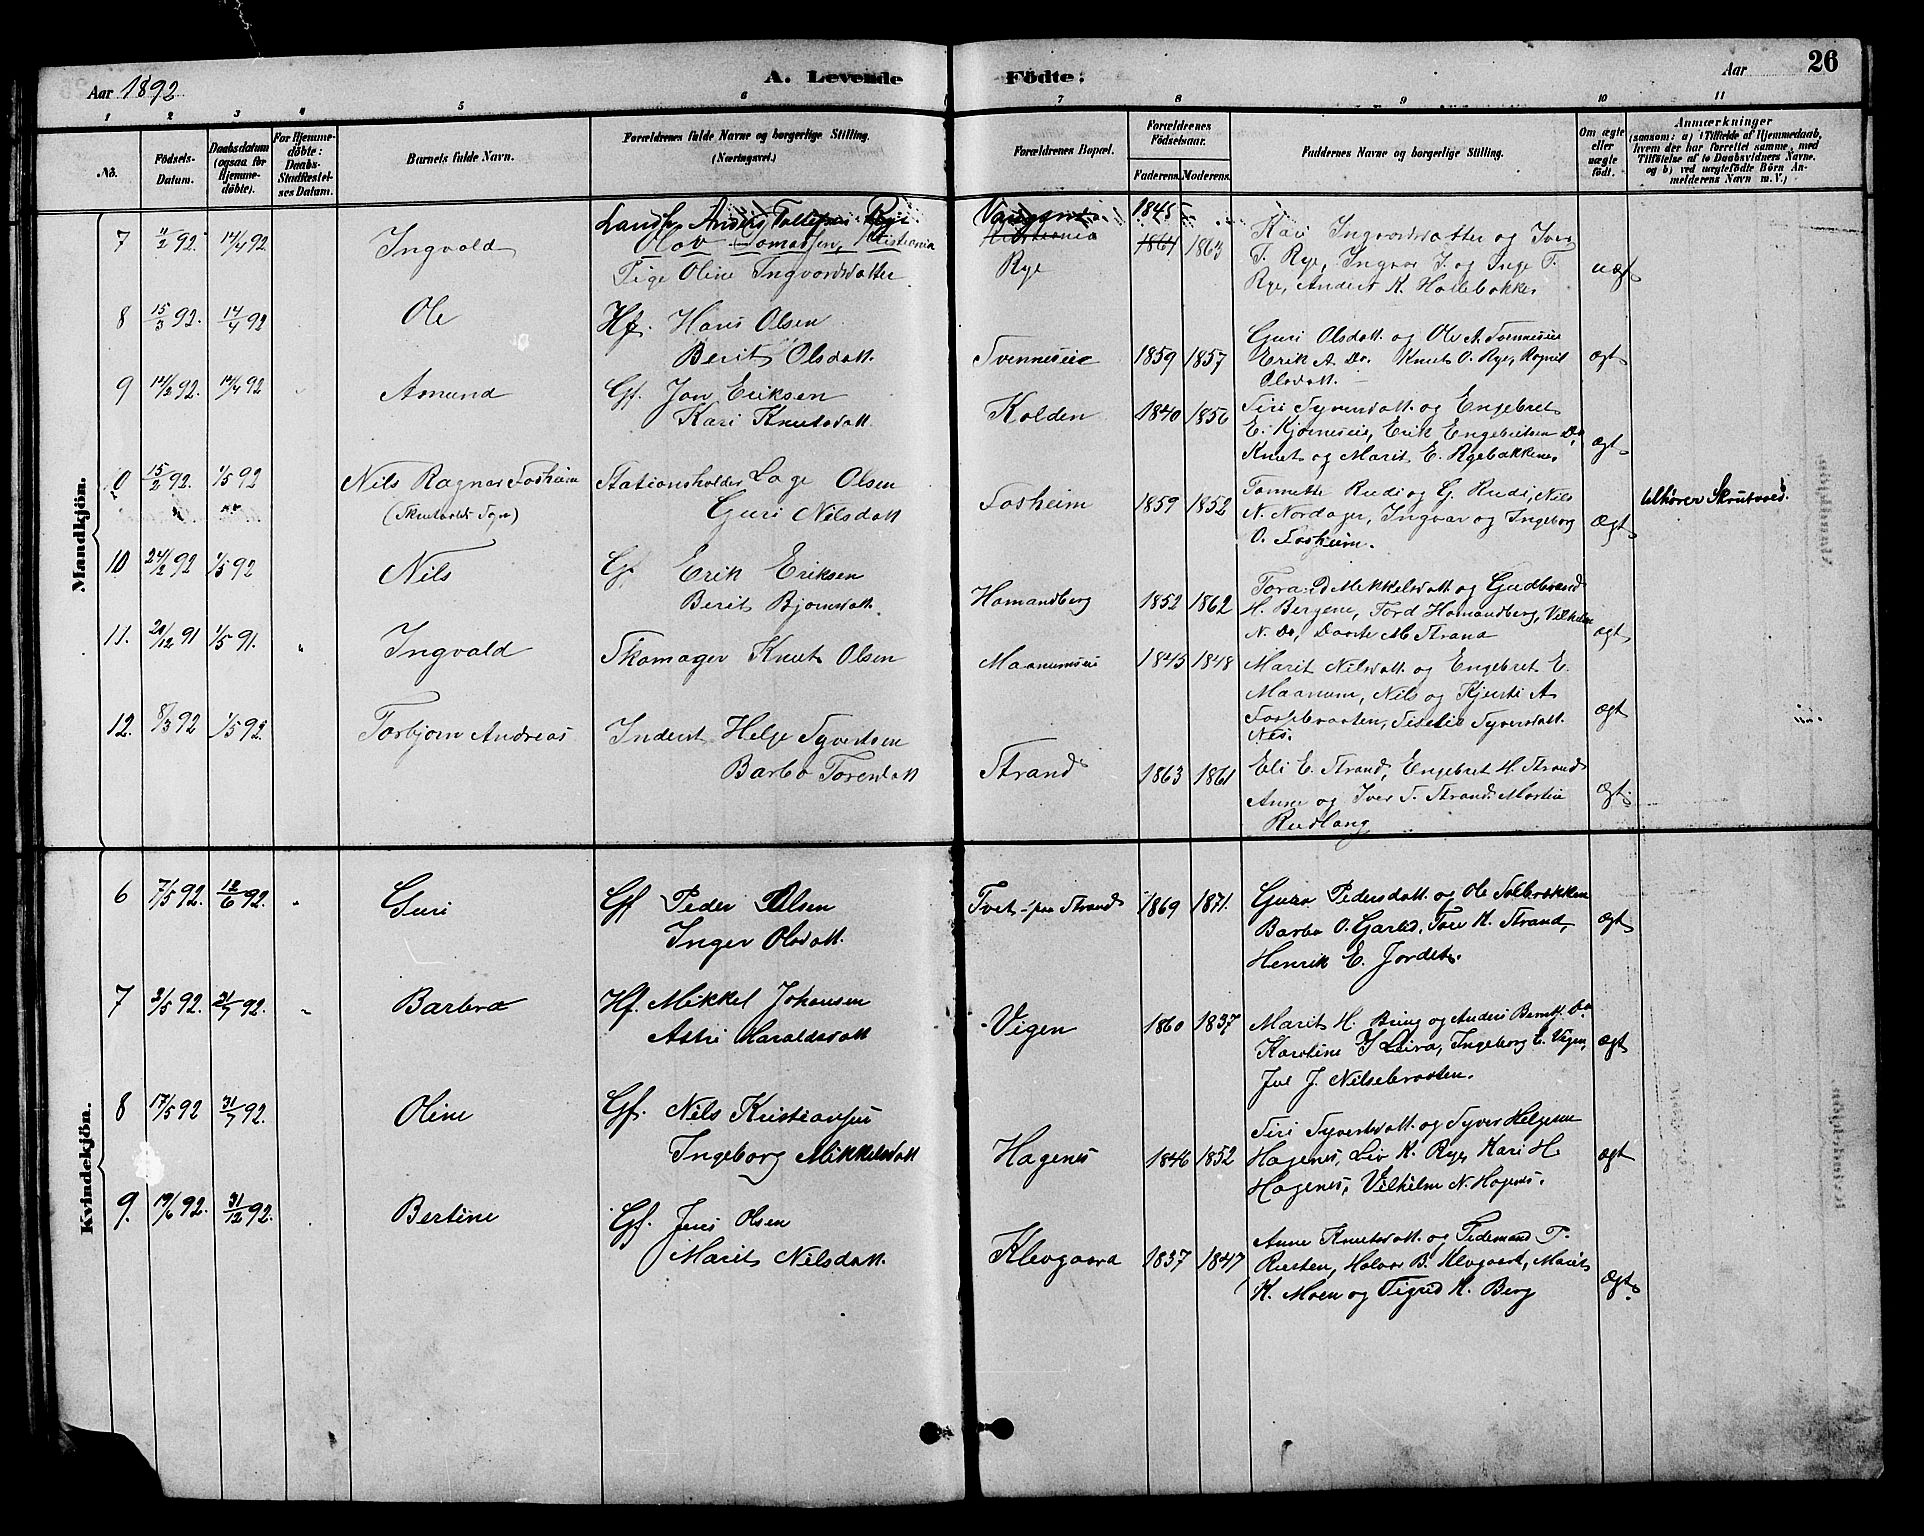 Aar 1892
A. Levende Födte:
Aar
26
1 2 3 4 5 6 7 8 9 10 11
No.
Födsels-Datum.
Daabsdatum (ogsaa for Hjemmedöbte).
For Hjemmedöbte: Daabs-Stadfæstelses Datum.
Barnets fulde Navn.
Forældrenes fulde Navne og borgerlige Stilling. (Næringsvei.)
Forældrenes Bopæl.
Forældrenes Födselsaar.
Faderens. Moderens.
Faddernes Navne og borgerlige Stilling.
Om ægte eller uægte födt.
Anmærkninger
(saasom: a) i Tilfælde af Hjemmedaab, hvem der har forrettet samme, med Tilföielse af to Daabsvidners Navne, og b) ved uægtefödte Börn Anmelderens Navn m. V.)
Mandkjön.
7 11/2 92. 14/4 92 Ingvold
Anders Tollefsen
Olav Tomassen, Kristiania
Pige Oline Ingvordsdatter
Kristiania
Rye
1845
1861 1863
Kari Ingvordsdatter og Iver
T. Rye, Ingvor I. og Inge T.
Rye, Anders K. Hollebakken
uægt
8 15/3 92. 14/4 92 Ole
Hf. Hans Olsen
Berit Olsdatt.
Svenneseie 1859 1857
Guri Olsdatt. og Ole A. Svenneseie
Erik A. Do. Knut O. Rye, Ragnil
Olsdatt.
ægt
9 14/2 92. 14/4 92 Amund
Gf. Jon Eriksen
Kari Knutsdatt.
Kolden 1840 1856
Siri Syversdatt. og Engebret
E. Kjørneseie, Erik Engebretsen Do,
Knut og Marit E. Ryebakkene
ægt
0 15/2 92. 1/5 92 Nils Ragnar Fosheim
(Skrutvolds Sogn)
Stationsholder Lage Olsen
Guri Nilsdatt
Fosheim 1859 1852
Tonnette Rudi og G. Rudi, Nils
N. Nordager, Ingvar og Ingeborg
O. Fosheim.
ægt
tilhører Skrutvold.
10 24/2 92 1/5 92 Nils
Gf. Erik Eriksen
Berit Bjørnsdatt.
Homandberg 1852 1862
Tora Mikkelsdatt og Gudbrand
H. Bergene, Tord Homandberg, Vilhelm
N. Do, Dorte M Strand
ægt
11. 20/12 91 1/5 91. Ingvald
Skomager Knut Olsen
Maanumseie 1845 1848
Marit Nilsdatt. og Engebret E.
Maanum, Nils og Kjersti A
Fossebraaten, Sidselie Syversdatt.
Nes.
ægt
12. 8/3 92 1/5 92. Torbjørn Andreas
Inderst Helge Syvertsen
Barbo Torersdatt
Strand 1863 1861
Eli E. Strand, Engebret H. Strand
Anne og Iver S. Strand. Martia
Rudlang
ægt.
Kvindekjön.
6 7/5 92. 12/6 92. Guri
Gf Peder Olsen
Inger Olsdatt.
Tvet paa Strand 1869 1871.
Guro Pedersdatt. og Ole Solbrækken
Barbo O. Garli, Tore K. Strand,
Henrik E. Jordet.
ægt
7 3/5 92. 31/7 92. Barbra
Hf. Mikkel Johansen
Astri Haraldsdatt
Vigen 1860 1837
Marit H. Bring og Anders Berntf. Do
Karoline J Leira, Ingeborg E. Vigen,
Jul J. Nilsebraaten.
ægt
8 17/5 92 31/7 92. Oline
Gf. Nils Kristiansen
Ingeborg Mikkelsdatt
Hagenes 1846 1852
Siri Syvertsdatt. og Syver Helgesen
Hagenes, Liv K. Rye, Kari H.
Hagenes, Vilhelm N. Hagenes.
ægt
9. 19/6 92. 31/12 92. Bertine
Gf. Jens Olsen
Marit Nilsdatt.
Klevgaard 1837 1847
Anne Knutsdatt. og Fedemand T.
Rusten, Halvor B. Klevgaard, Marit
K. Moen og Sigrid K. Berg
ægt.